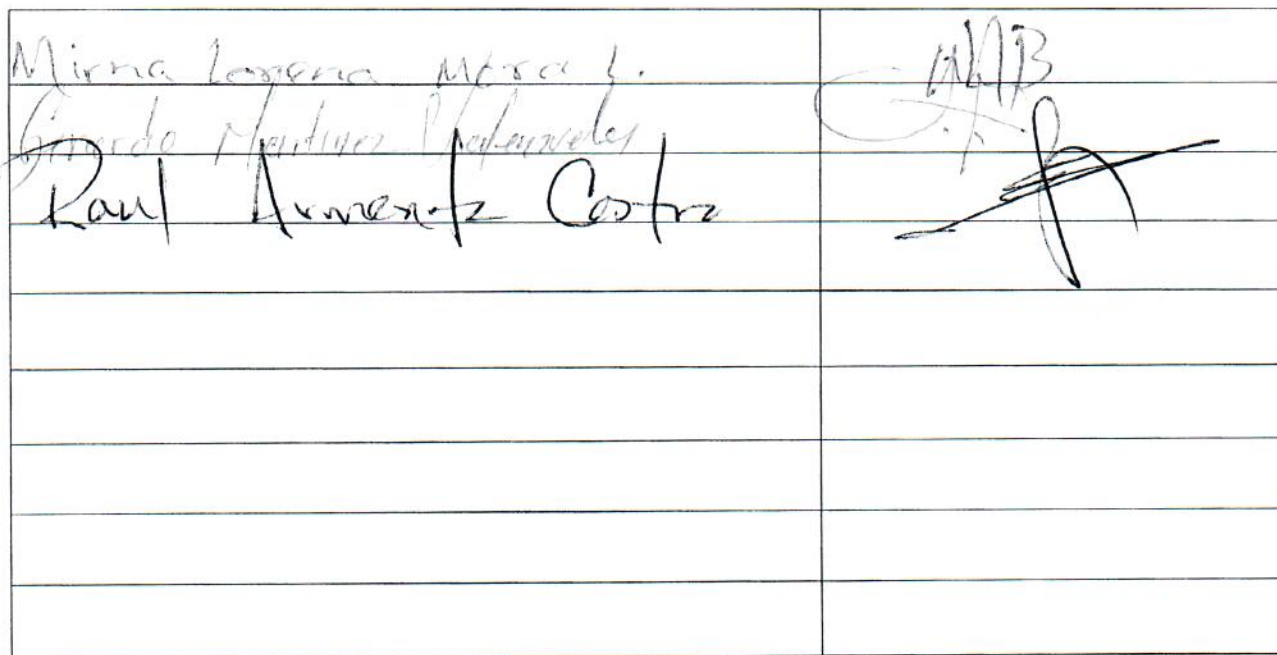 Mirna Lorena Mora L.
Gerardo Martinez Valenzuela
Raul Armenta Castro